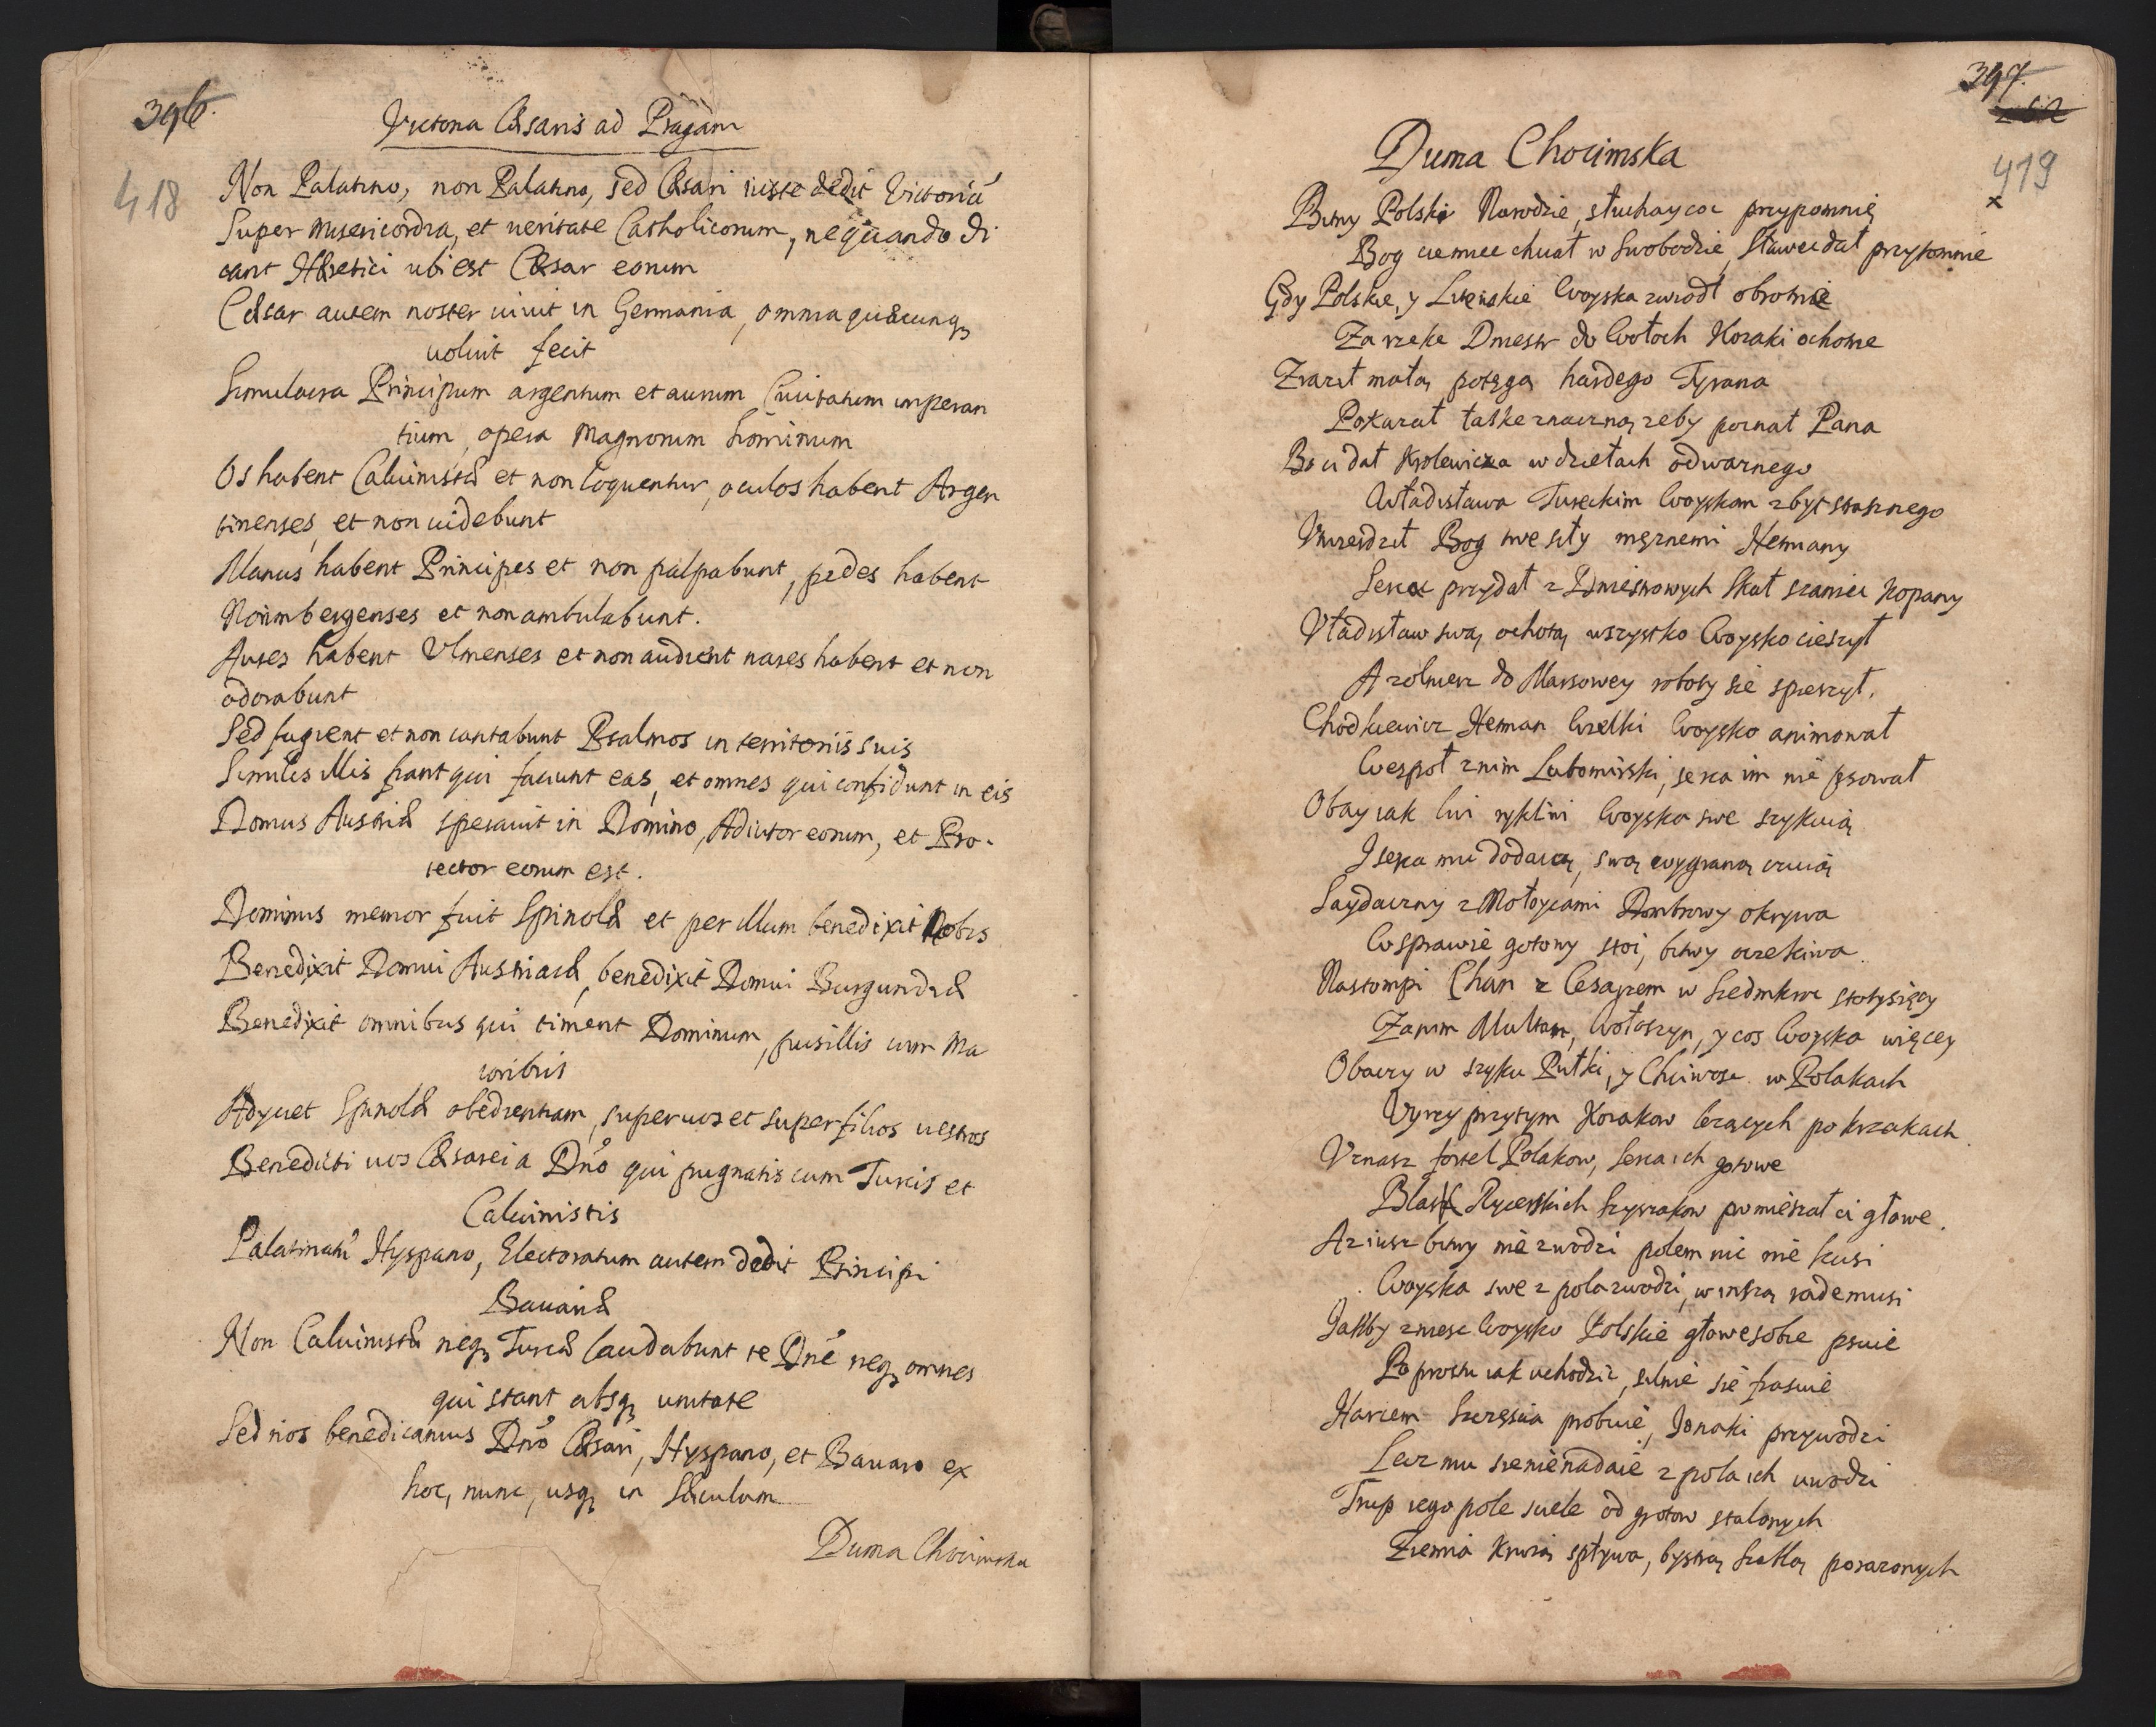 396.
418
Victoria Cæsaris ad Pragam
Non Palatino, non Palatino, sed Cæsari iuste dedit Victoriã
Super misericordia, et ueritate Catholicorum, nequando di
cant Hæretici ubi est Cæsar eorum
Cæsar autem noster uiuit in Germania, omnia quæcunqȝ
uoluit fecit
Simulacra Principum argentum et aurum Ciuitatum imperan
tium, opera Magnorum hominum
Os habent Caluinistæ et non loquentur, oculos habent Argen
tinenses, et non uidebunt
Manus habent Principes et non palpabunt, pedes habent
Norimbergenses et non ambulabunt.
Aures habent Vlmenses et non audient nares habent et non
odorabunt
Sed fugient et non cantabunt Psalmos in territoriis suis
Similes illis fiant qui faciunt eas, et omnes qui confidunt in eis
Domus Austriæ sperauit in Domino, Adiutor eorum, et Pro-
tector eorum est.
Dominus memor fuit Spinolæ et per illum benedixit Nobis
Benedixit Domui Austriacæ, benedixit Domui Burgundiæ
Benedixit omnibus qui timent Dominum, pusillis cum Ma
ioribus
Adyciet Spinolæ obedientiam, super uos et super filios uestros
Benedicti uos Cæsarei a Dño qui pugnatis cum Turcis et
Caluinistis
Palatinatũ Hyspano, Electoratum autem dedit Principi
Bauariæ
Non Caluinistæ neqȝ Turcæ laudabunt te Dñe neqȝ omnes
qui stant absqȝ unitate
Sed nos benedicamus Dño Cæsari, Hyspano, et Bauaro ex
hoc, nunc, usqȝ in Sæculum
Duma Chocimska
397.
419
x
Duma Chocimska
Bitny Polski Narodzie, słuchay co przypomnię
Bog cie miec chciał w Swobodzie, Sławe ci dał przytomnie
Gdy Polskie, y Litewskie Woyska zwiodł obrotnie
Za rzeke Dniestr do Wołoch Kozaki ochotne
Zraził małą potęgą hardego Tyrana
Pokazał łaske znaczną zeby poznał Pana
Bo ci dał Krolewicza w dziełach odwaznego
Władisława Tureckim Woyskom zbyt strasznego
Vtwierdził Bog twe siły męznemi Hetmany
Serca przydał z Dniestrowych Skał szaniec kopany
Vładisław swą ochotą wszystko Woysko cieszył
A zołnierz do Marsowey roboty sie spieszył.
Chodkiewicz Hetman Wielki Woysko animował
Wespoł z nim Lubomirski, serca im nie psował
Obay iak lwi rykliwi Woyska swe szykuią
I serca mu dodaią, swą wygraną czuią
Saydaczny z Mołoycami Dombrowy okrywa
W sprawie gotowy stoi, bitwy oczekiwa
Nastompi Chan z Cesarzem w Siedmkroc stotysięcy
Zanim Multan, Wołoszyn, y cos Woyska więcey
Obaczy w szyku Pułki, y Chciwosc w Polakach
Vyrzy przytym Kozakow lezących po krzakach
Vznasz fortel Polakow, Serca ich gotowe
Blask Rycerskich Szyszakow pomieszał ci głowe.
Az iusz bitwy nie zwodzi polem nic nie kusi
Woyska swe z pola zwodzi, w inszą rade musi
Jakby zniesc Woysko Polskie głowe sobie psuie
Po prostu iak uchodzic, silnie sie frasuie
Harcem Szczęscia probuie, Jonaki przywodzi
Lecz mu sie nie nadaie z pola ich uwodzi
Trup iego pole sciele od grotow stalonych
Ziemia krwią spływa, bystrą Szablą porazonych